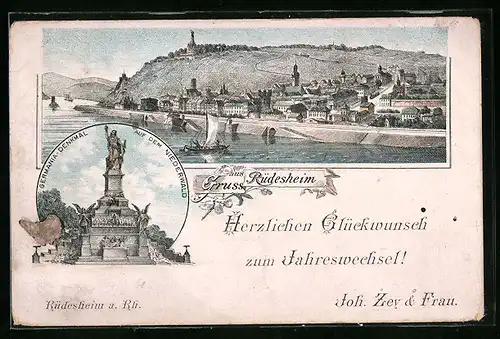 Gruss aus Rüdesheim
GERMANIA-DENKMAL AUF DEM NIEDERWALD
Herzlichen Glückwunsch
zum Jahreswechsel!
Rüdesheim a. Rh.
Joh. Zey & Frau.